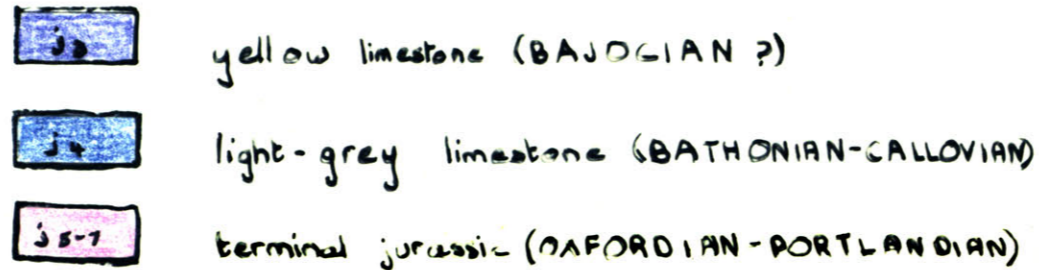 j3 yellow limestone (BAJOCIAN ?)
j4 light-grey limestone (BATHONIAN-CALLOVIAN)
j5-7 terminal jurassic (OXFORDIAN-PORTLANDIAN)